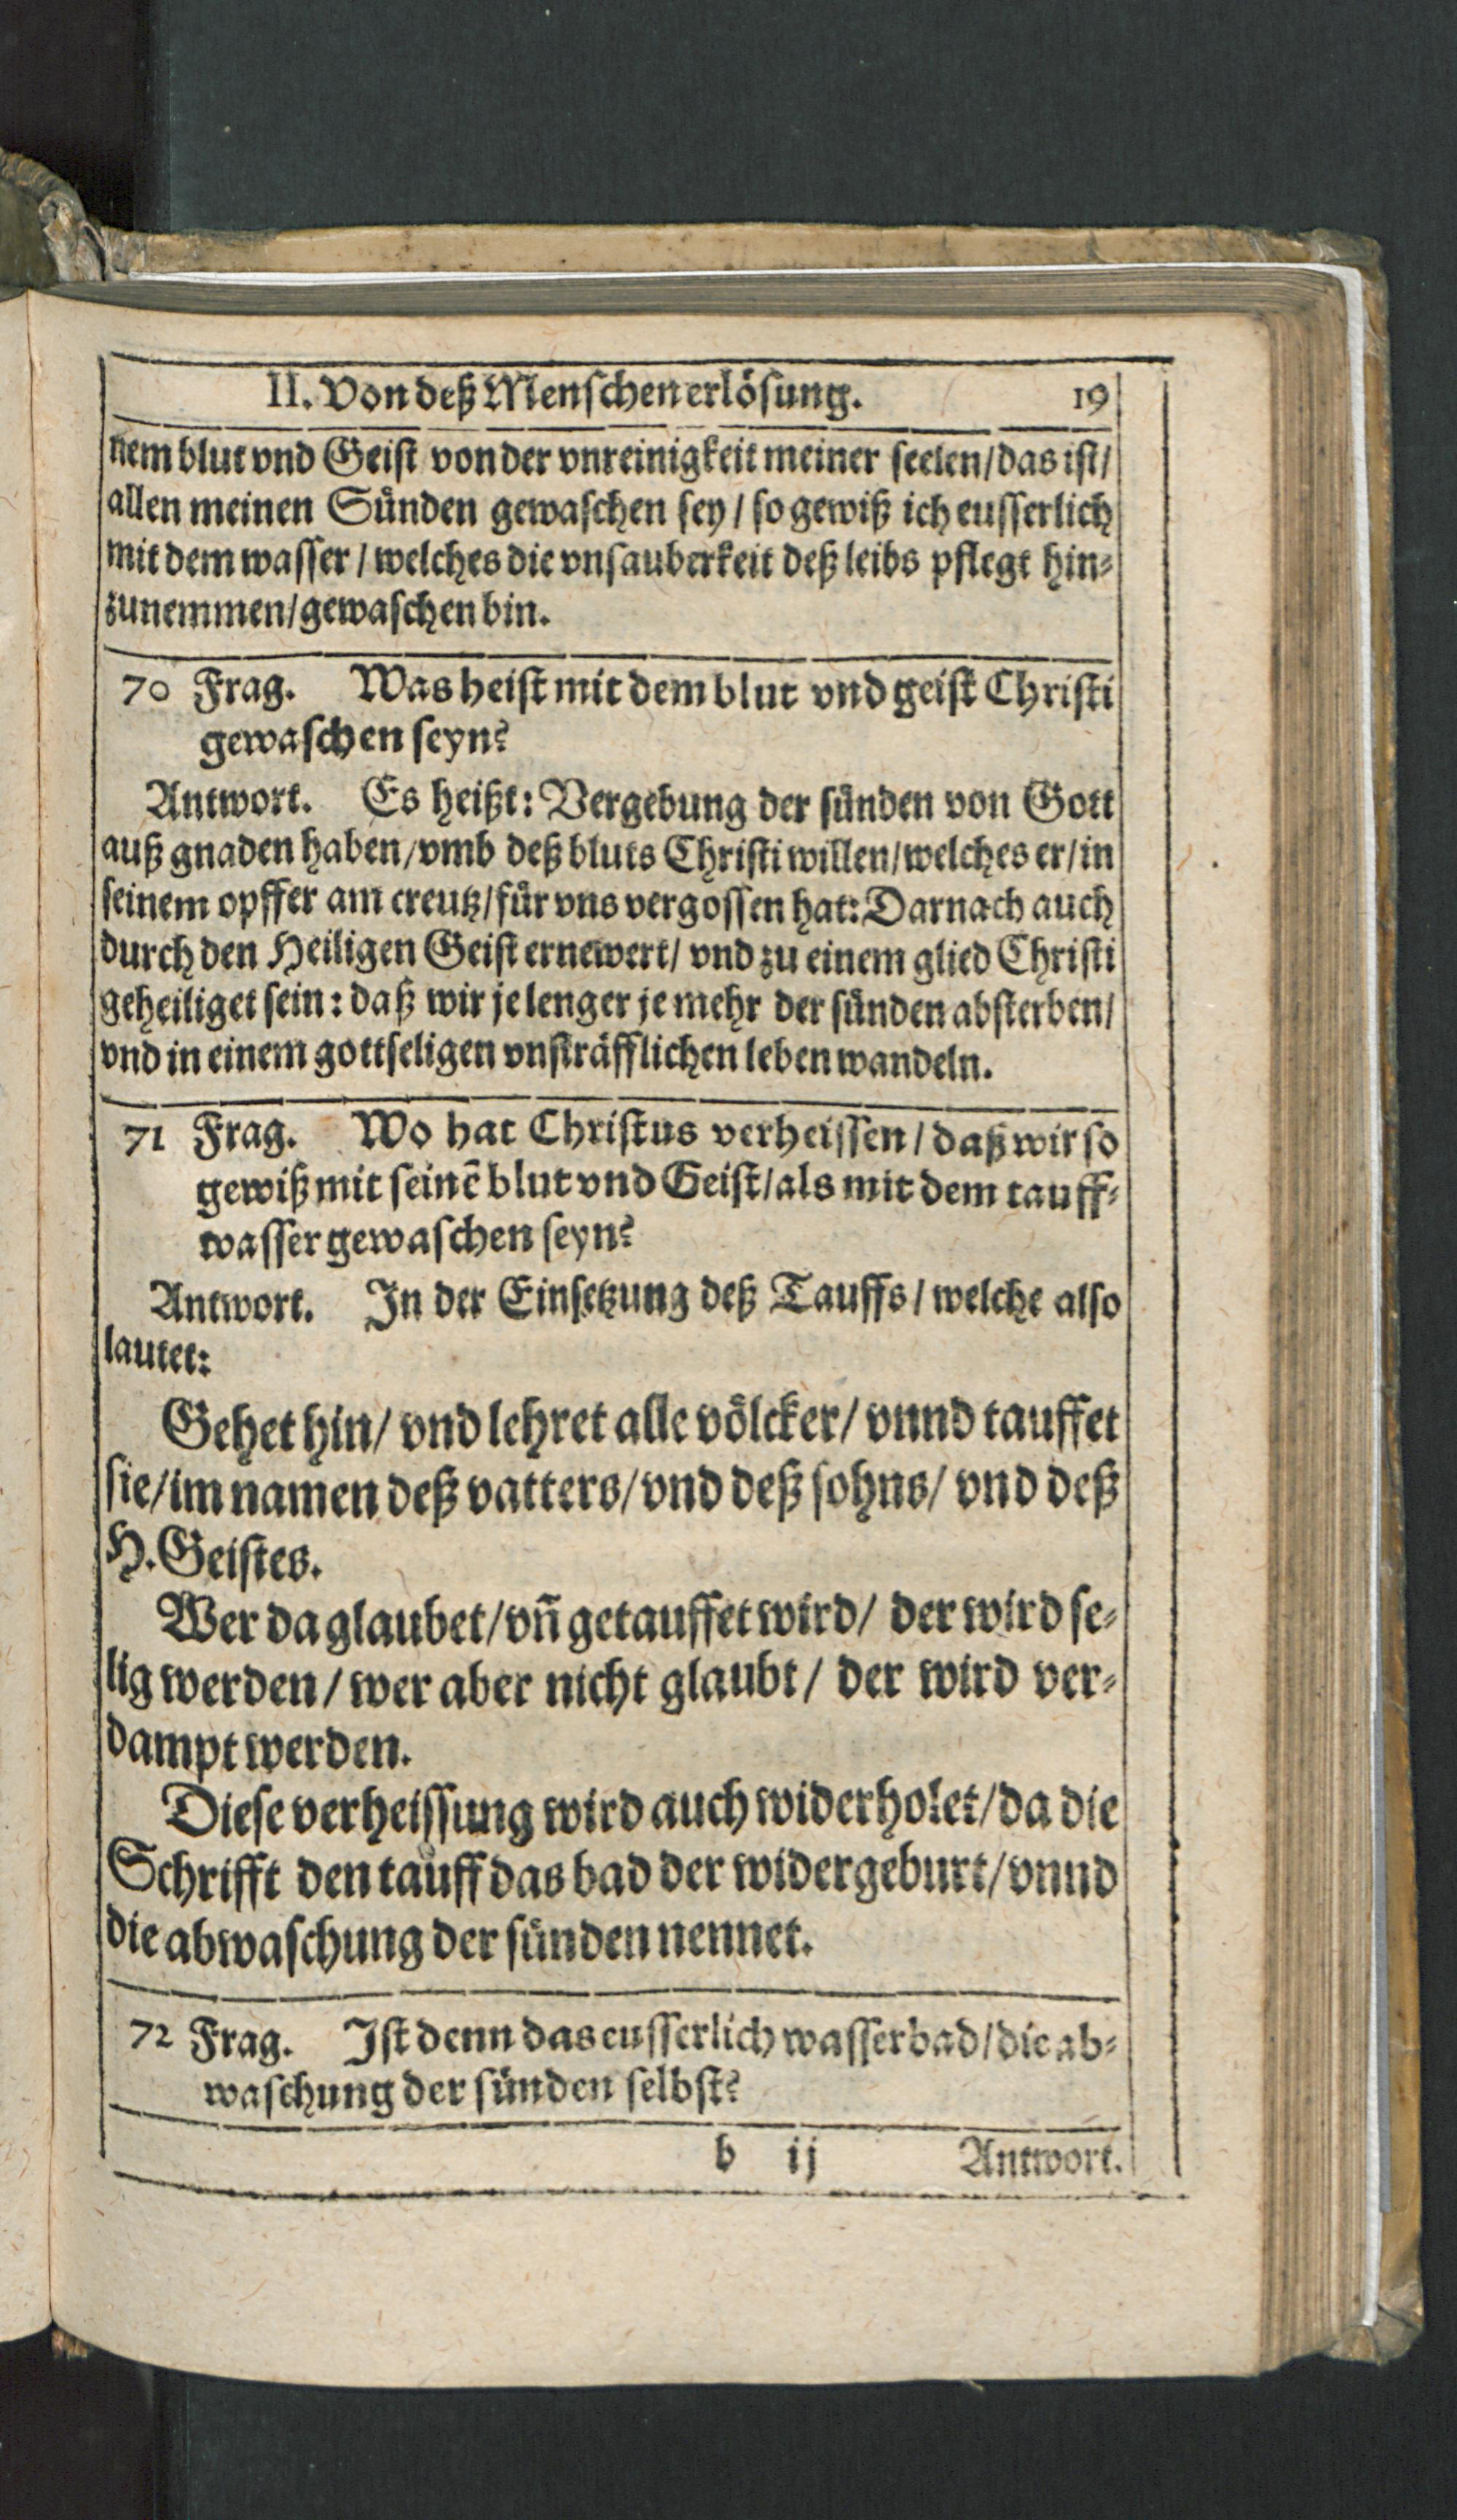 II. Von deß Menschen erlösung. 19
nem blut vnd Geist von der vnreinigkeit meiner seelen/das ist/
allen meinen Sünden gewaschen sey / so gewiß ich eusserlich
mit dem wasser / welches die vnsauberkeit deß leibs pflegt hin⸗
zunemmen/gewaschen bin.
70 Frag. Was heist mit dem blut vnd geist Christi
gewaschen seyn?
Antwort. Es heißt: Vergebung der sünden von Gott
auß gnaden haben/vmb deß bluts Christi willen/welches er/in
seinem opffer am creutz/für vns vergossen hat: Darnach auch
durch den Heiligen Geist ernewert/ vnd zu einem glied Christi
geheiliget sein: daß wir je lenger je mehr der sünden absterben/
vnd in einem gottseligen vnsträfflichen leben wandeln.
71 Frag. Wo hat Christus verheissen/ daß wir so
gewiß mit seinē blut vnd Geist/als mit dem tauff⸗
wasser gewaschen seyn?
Antwort. In der Einsetzung deß Tauffs/ welche also
lautet:
Gehet hin/ vnd lehret alle völcker/ vnnd tauffet
sie/im namen deß vatters/vnd deß sohns/ vnd deß
H. Geistes.
Wer da glaubet/vn̄ getauffet wird/ der wird se⸗
lig werden/ wer aber nicht glaubt/ der wird ver⸗
dampt werden.
Diese verheissung wird auch widerholet/da die
Schrifft den tauff das bad der widergeburt/vnnd
die abwaschung der sünden nennet.
72 Frag. Ist denn das eusserlich wasserbad/die ab⸗
waschung der sünden selbst?
b ij Antwort.